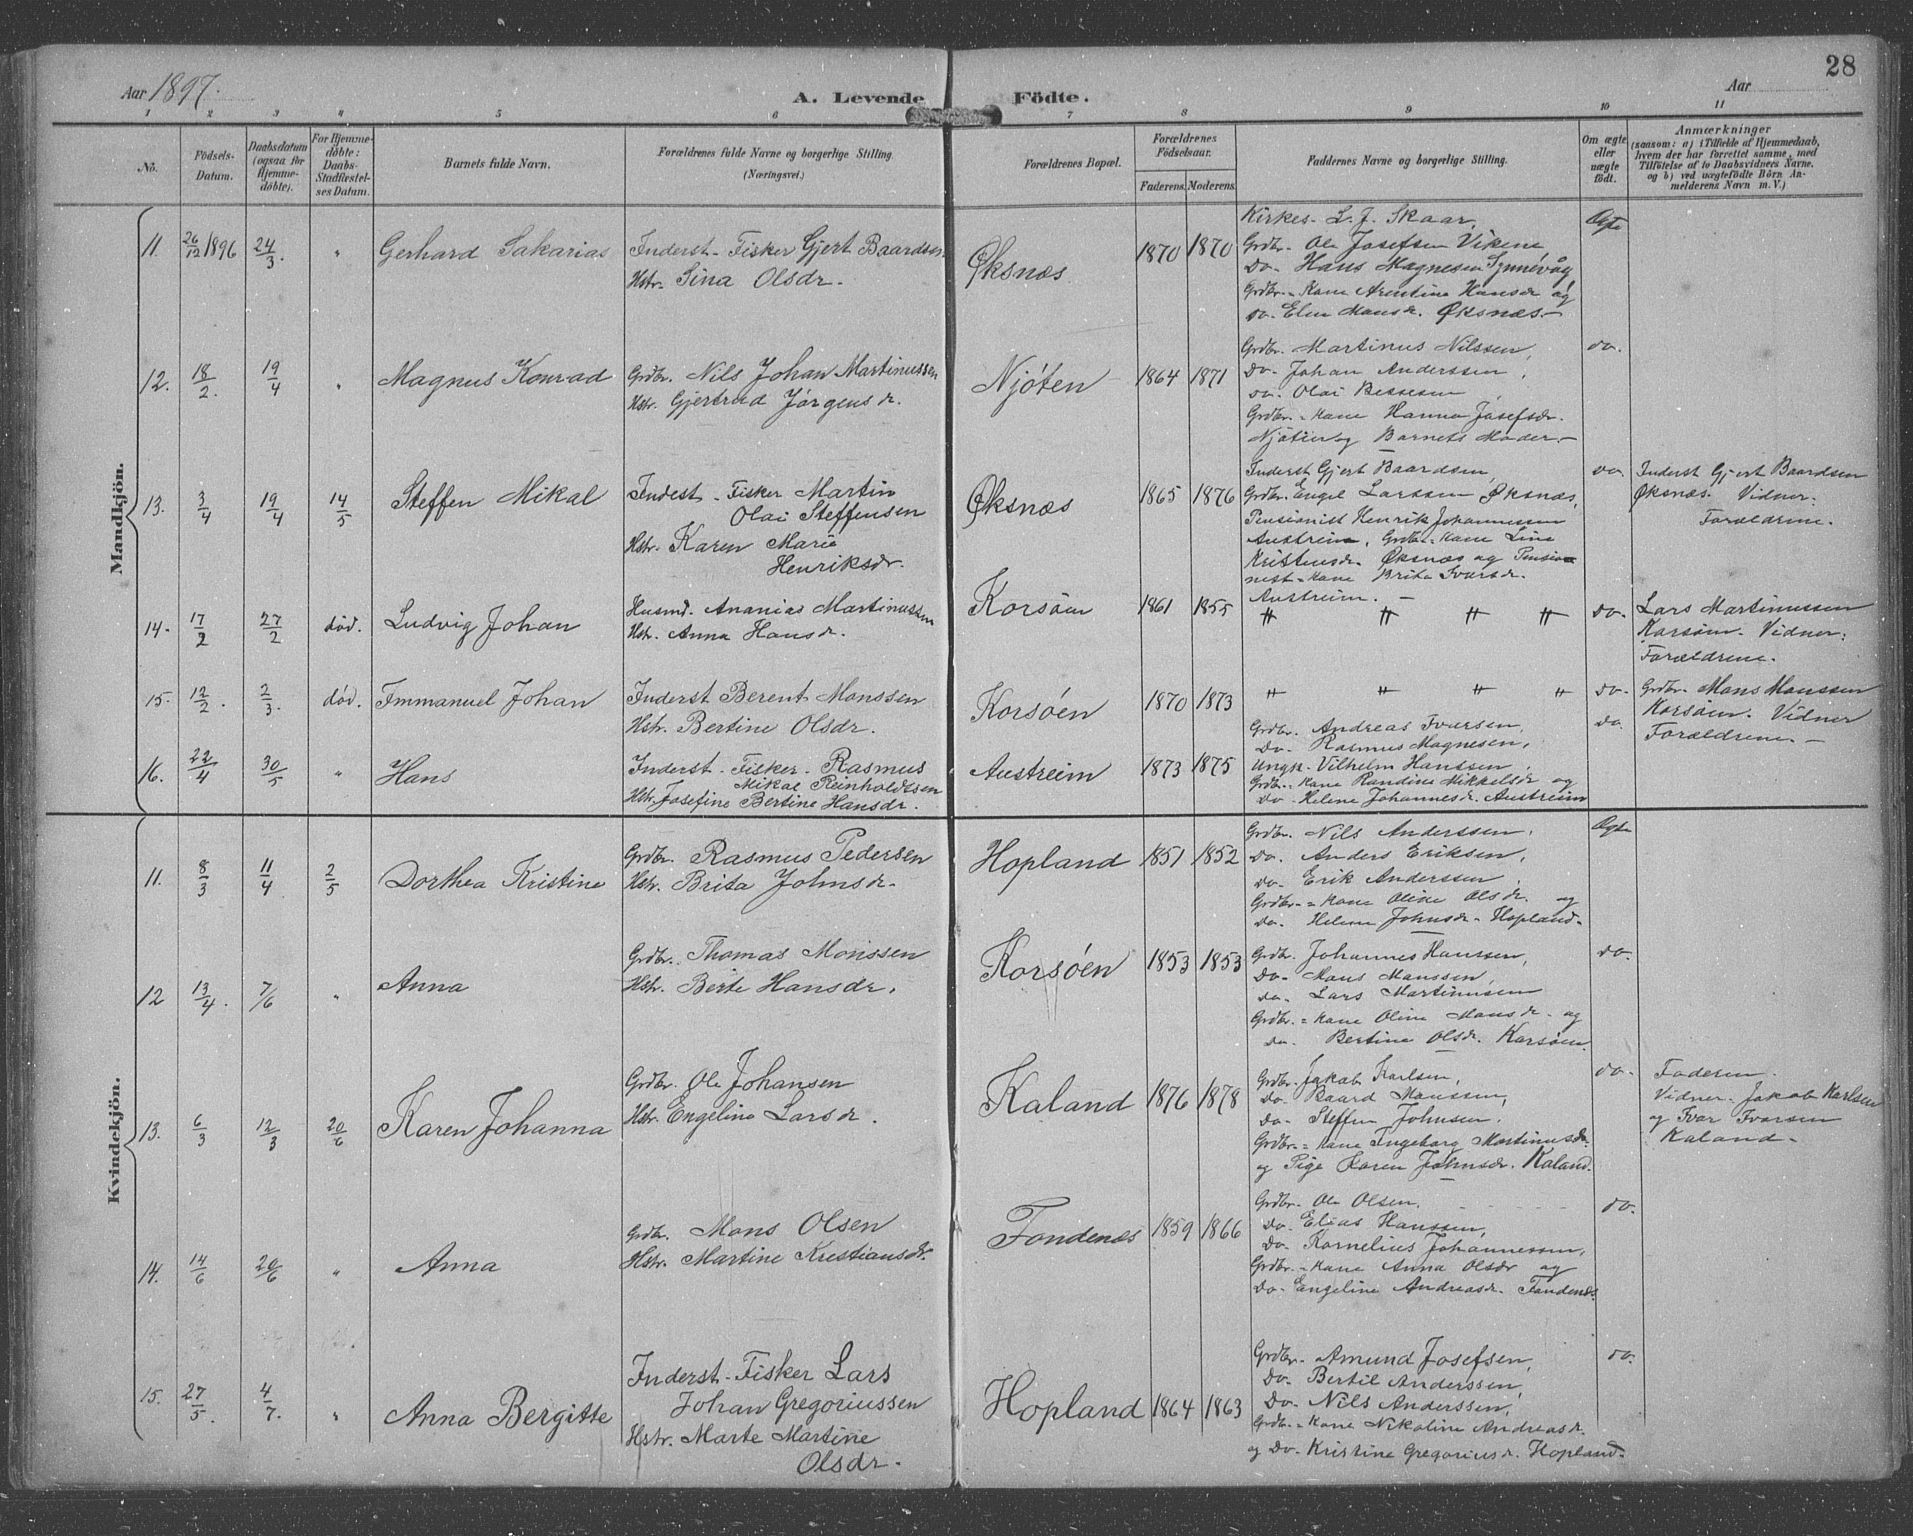 28
Aar 1897.
A. Levende Födte.
Aar
1 2 3 4 5 6 7 8 9 10 11
No.
Födsels-Datum.
Daabsdatum (ogsaa for Hjemmedöbte).
For Hjemmedöbte: Daabs-Stadfæstelses Datum.
Barnets fulde Navn.
Forældrenes fulde Navne og borgerlige Stilling. (Næringsvei.)
Forældrenes Bopæl.
Forældrenes Födselsaar.
Faderens. Moderens.
Faddernes Navne og borgerlige Stilling.
Om ægte eller uægte födt.
Anmærkninger
(saasom: a) i Tilfælde af Hjemmedaab, hvem der har forrettet samme, med Tilföielse af to Daabsvidners Navne, og b) ved uægtefödte Börn Anmelderens Navn m. V.)
Mandkjön.
11. 26/12 1896 24/3. " Gerhard Sakarias
Inderst - Fisker Gjert Baardsen
Hstr. Sina Olsdr.
Øksnæs 1870 1870
Kirkes. L. J. Skaar,
Grdbr. Ole Josefsen Vikene
Do. Hans Magnesen Synnevåg
Grdbr. = Kone Arentina Hansdr og
do. Elen Monsdr. Øksnæs.
Ægte
12. 18/2. 19/4 " Magnus Konrad
Grdbr. Nils Johan Martinussen
Hstr. Gjertrud Jørgensdr.
Njøten 1864 1871
Grdbr. Martinus Nilssen,
Do. Johan Anderssen,
do. Olai Bessesen,
Grdbr. = Kone Hanna Josefsdr.
Njøten og Barnets Moder.
do.
13. 3/4 19/4 14/5 Steffen Mikal
Indest - Fisker Martin
Olai Steffensen
Hstr. Karen Marie
Henriksdr.
Øksnæs 1865 1876
Inderst Gjert Baardsen,
Grdbr. Engel Larssen Øksnæs,
Pensionist Henrik Johannessen
Austreim, Grdbr. = Kone Line
Kristensdr. Øksnæs og Pensio-
nist = Kone Brita Ivarsdr.
Austreim.
do.
Inderst Gjert Baardsen
Øksnæs. Vidner.
Forældrene.
14. 17/2 27/2 død. Ludvig Johan
Husmd. Ananias Martinussen
Hstr. Anna Hansdr.
Korsøen 1861 1855 " " " " do.
Lars Martinussen
Korsøen. Vidner:
Forældrene.
15. 12/2. 2/3. død. Immanuel Johan
Inderst Berent Monssen
Hstr. Bertine Olsdr.
Korsøen 1870 1873 " " " " do.
Grdbr. Mons Monssen
Korsøen. Vidner
Forældrene.
16. 22/4 30/5 " Hans
Inderst - Fisker - Rasmus
Mikal Reinholdtsen
Hstr. Josefine Bertine Hansdr.
Austreim 1873 1875
Grdbr. Andreas Ivarsen,
Do. Rasmus Magnesen,
Ungk. Vilhelm Hanssen,
Grdbr. = Kone Randine Mikkelsdr og
Do. Helene Johannesdr. Austreim
do
Kvindekjön.
11. 8/3 11/4 2/5 Dorthea Kristine
Grdbr. Rasmus Pedersen
Hstr. Brita Johnsdr.
Hopland 1851 1852
Grdbr. Nils Anderssen,
Do. Anders Eriksen,
Do. Erik Anderssen,
Grdbr. = Kone Oline Olsdr. og
Do. Helene Johnsdr. Hopland.
Ægte
12 13/4. 7/6 " Anna
Grdbr. Thomas Monssen
Hstr. Berte Hansdr.
Korsøen 1853 1853
Grdbr. Johannes Hanssen,
Do. Mons Monssen,
do. Lars Martinussen
Grdbr. = Kone Oline Monsdr. og
do. Bertine Olsdr. Korsøen.
do.
13. 6/3 12/3 20/6 Karen Johanna
Grdbr. Ole Johansen
Hstr. Engeline Larsdr.
Kaland 1876 1878
Grdbr. Jakob Karlsen,
Do. Baard Monssen,
Do. Steffen Johnsen,
Grdbr. = Kone Ingeborg Martinusdr.
og Pige Karen Johnsdr. Kaland.
do.
Faderen.
Vidner. Jakob Karlsen
og Ivar Ivarsen
Kaland.
14. 14/6 20/6 " Anna
Grdbr. Mons Olsen
Hstr. Martine Kristiansdr.
Fondenæs 1859 1866
Grdbr. Ole Olsen,
Do. Elias Hanssen,
Do. Kornelius Johannessen,
Grdbr. = Kone Anna Olsdr og
Do. Engeline Andreasdr. Fondenæs
do.
15. 27/5. 4/7. " Anna Bergitte
Inderst - Fisker Lars
Johan Gregoriussen
Hstr. Marte Martine
Olsdr.
Hopland 1864 1863
Grdbr. Amund Josefsen,
Do. Bertil Anderssen,
Do. Nils Anderssen,
Grdbr. = Kone Nikoline Andreasdr.
og Do. Kristine Gregoriusdr. Hopland.
do.